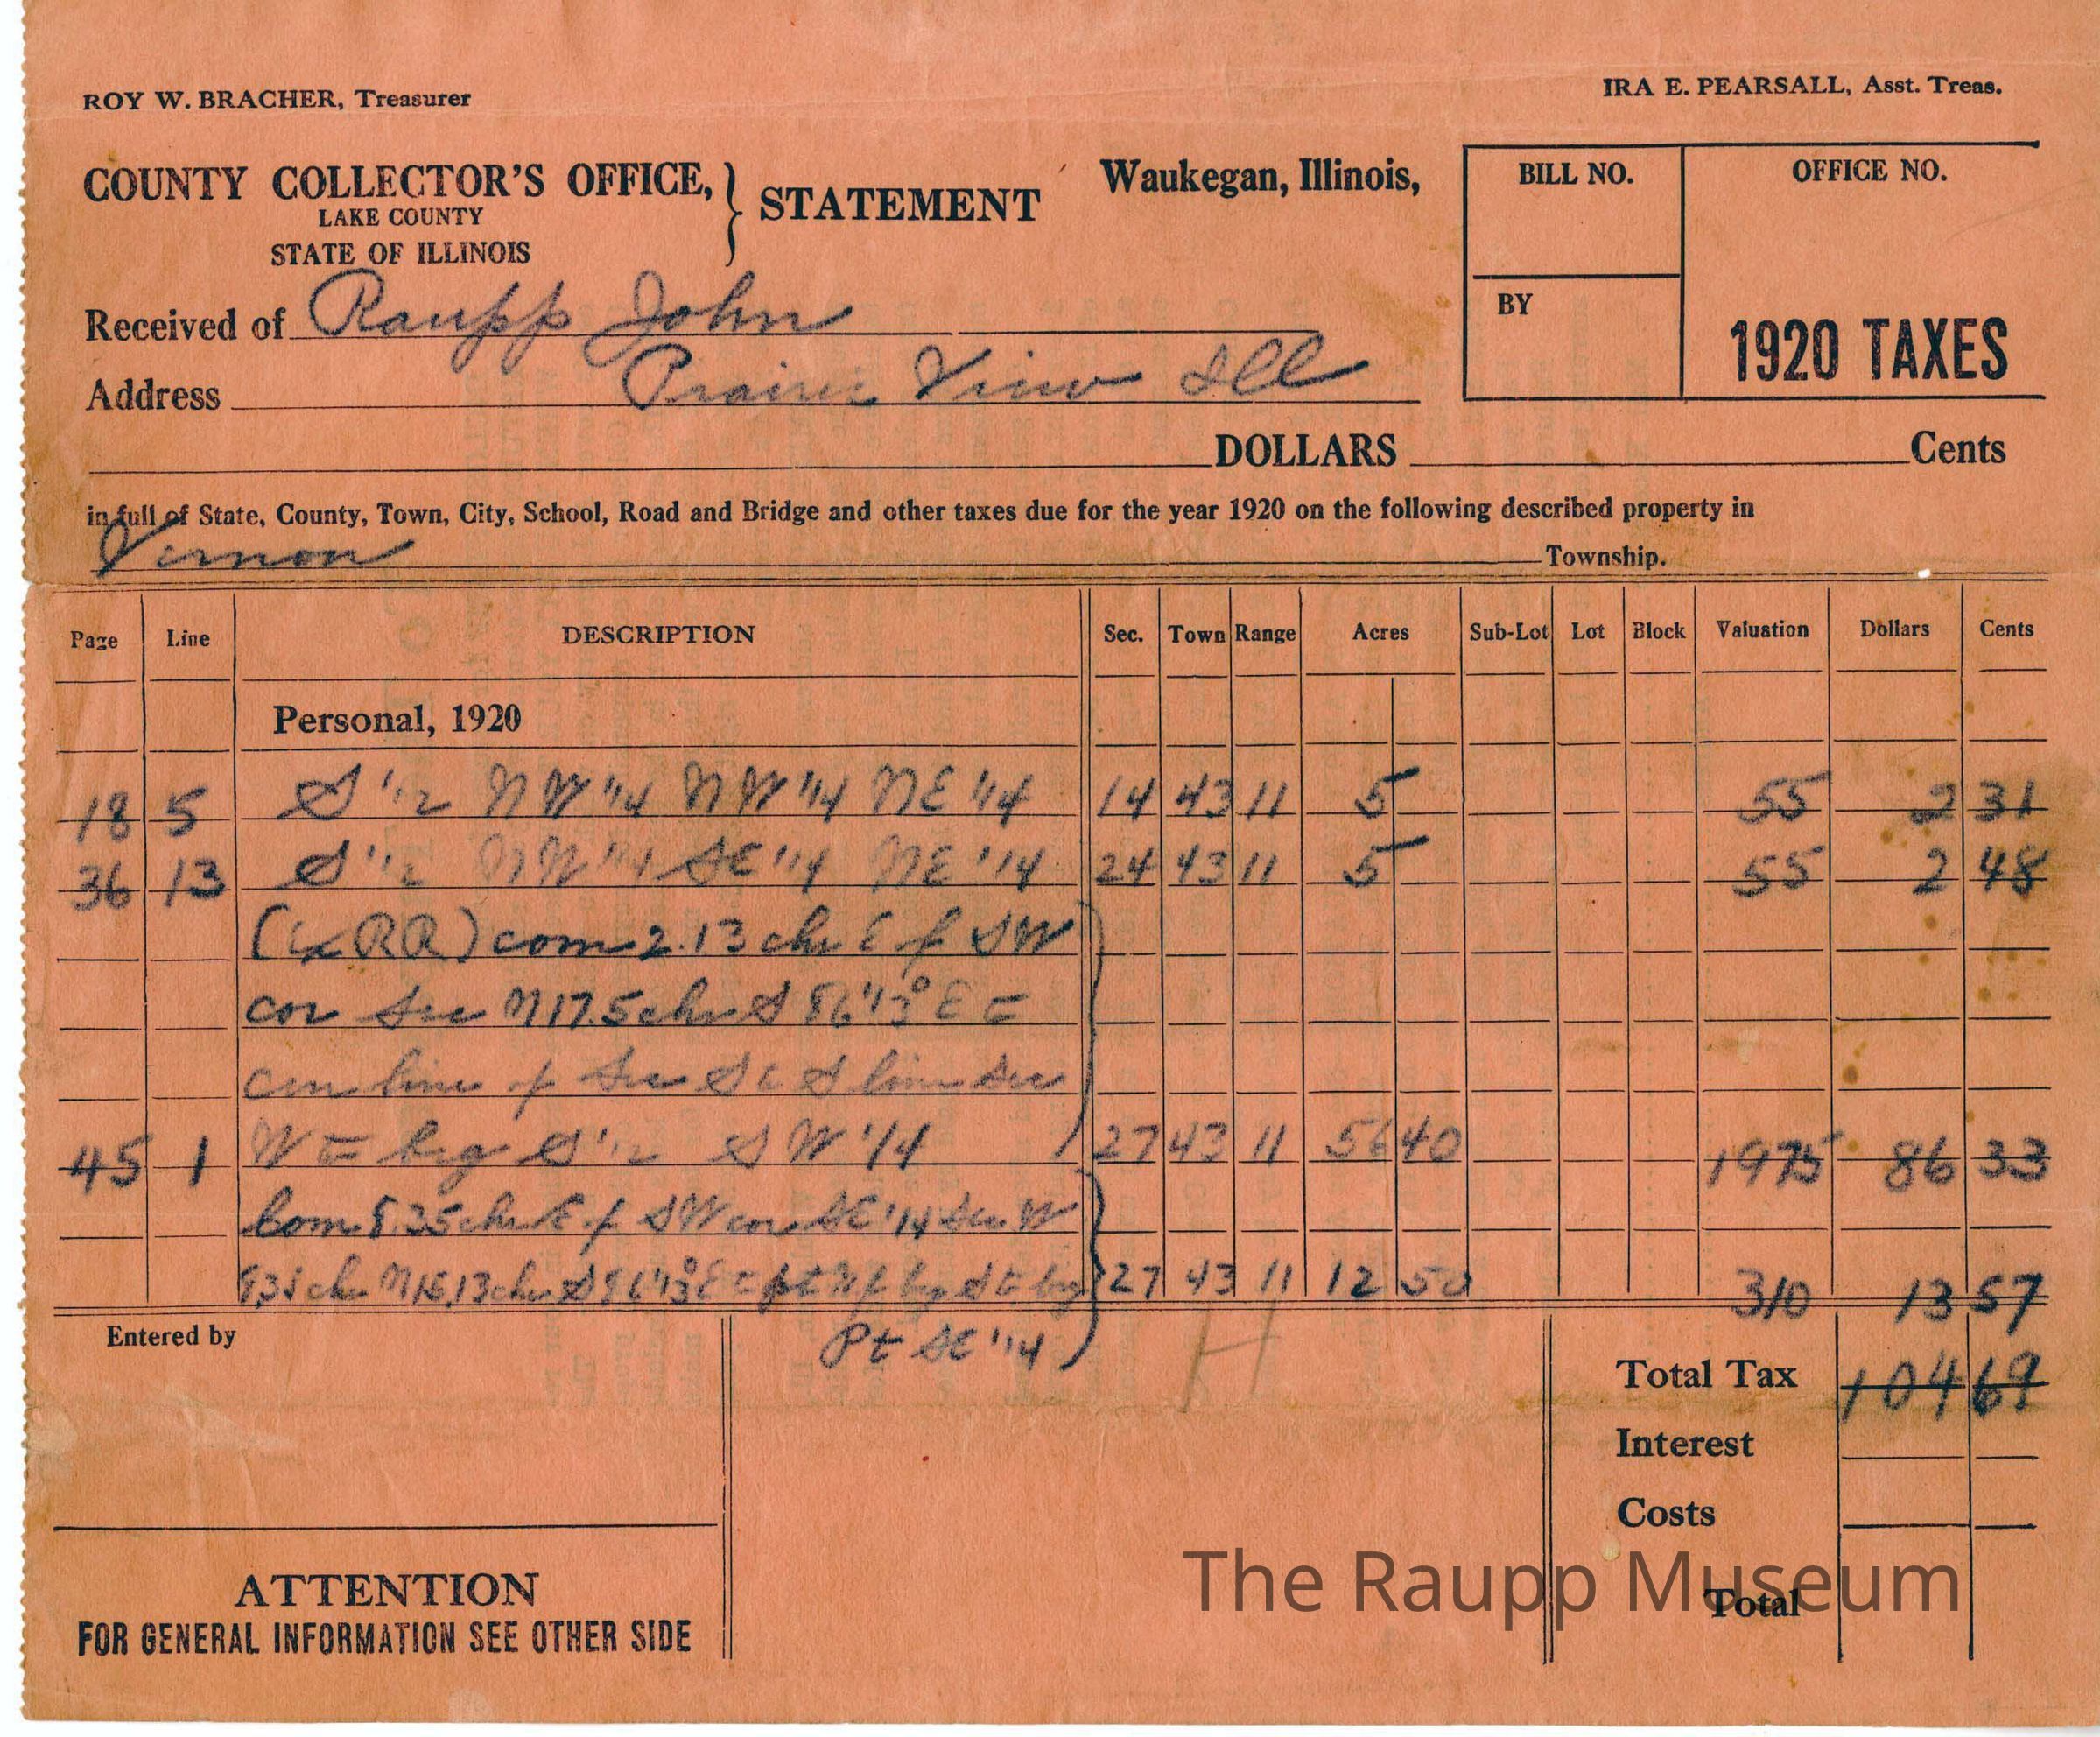 ROY W. BRACHER, Treasurer
IRA E. PEARSALL, Asst. Treas.
COUNTY COLLECTOR'S OFFICE,
LAKE COUNTY
STATE OF ILLINOIS
STATEMENT
Waukegan, Illinois,
BILL NO.
OFFICE NO.
BY
1920 TAXES
Received of Raupp John
Address Prairie View Ill
DOLLARS Cents
in full of State, County, Town, City, School, Road and Bridge and other taxes due for the year 1920 on the following described property in
Vernon Township.
Page Line DESCRIPTION Sec. Town Range Acres Sub-Lot Lot Block Valuation Dollars Cents
Personal, 1920
18 5 S 1/2 NW 1/4 NW 1/4 NE 1/4 14 43 11 5 55 2 31
36 13 S 1/2 NW 1/4 SE 1/4 NE 1/4 24 43 11 5 55 2 48
(ex RR) com 2.13 chs E of SW
cor Sec N 17.5 chs S 86 1/3° E to
cen line of Sec S to S line Sec
45 1 W to beg S 1/2 SW 1/4 27 43 11 56 40 1975 86 33
Com 8.35 chs E of SW cor SE 1/4 Sec
chs N chs S E to pt N of beg S to beg 27 43 11 12 50 310 13 57
Pt SE 1/4
Entered by
Total Tax 104 69
Interest
Costs
Total
ATTENTION
FOR GENERAL INFORMATION SEE OTHER SIDE
The Raupp Museum